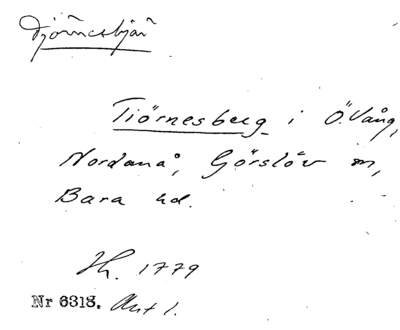 Tjörnesbjär
Tiörnesberg i Ö. Vång,
Nordanå, Görslöv sn,
Bara hd.
Hh. 1779
Nr 6318. Akt 1.